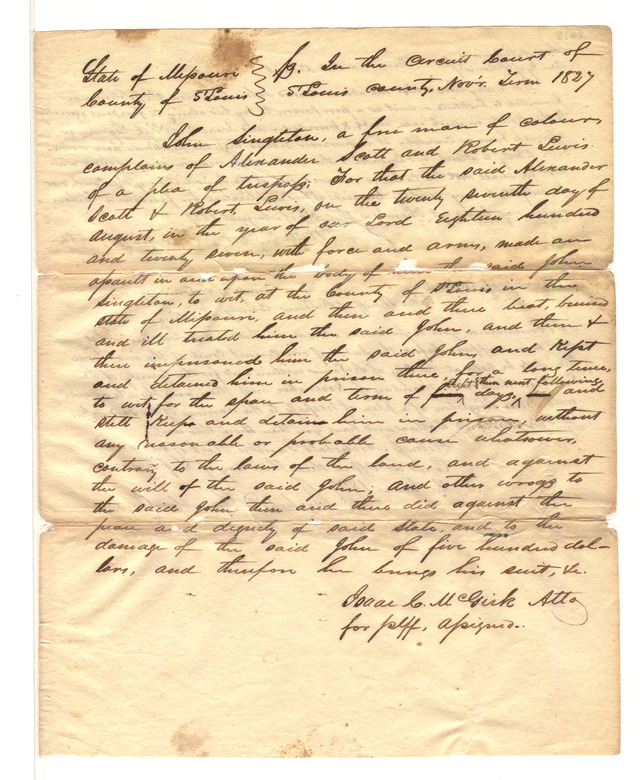 State of Missouri } ss. In the Circuit Court of
County of St Louis } St Louis county, Novr. Term 1827
John Singleton, a free man of colour,
complains of Alexander Scott and Robert Lewis
of a plea of trespass; For that the said Alexander
Scott & Robert Lewis, on the twenty seventh day of
august, in the year of our Lord Eighteen hundred
and twenty seven, with force and arms, made an
assault in and upon the body of the said John
Singleton, to wit, at the County of St Louis in the
state of Missouri, and then and there beat, bruised
and ill treated him the said John, and then &
there imprisoned him the said John, and kept
and detained him in prison there, for a long time,
to wit, for the space and term of days, then next following and
still keeps and detains him in prison, without
any reasonable or probable cause whatsoever,
contrary to the laws of the land, and against
the will of the said John. and other wrongs to
the said John then and there did against the
peace and dignity of said state, and to the
damage of the said John of five hundred dol-
lars, and therefore he brings his suit, &c.
Isaac C. McGirk Atto
for plff, assigned.